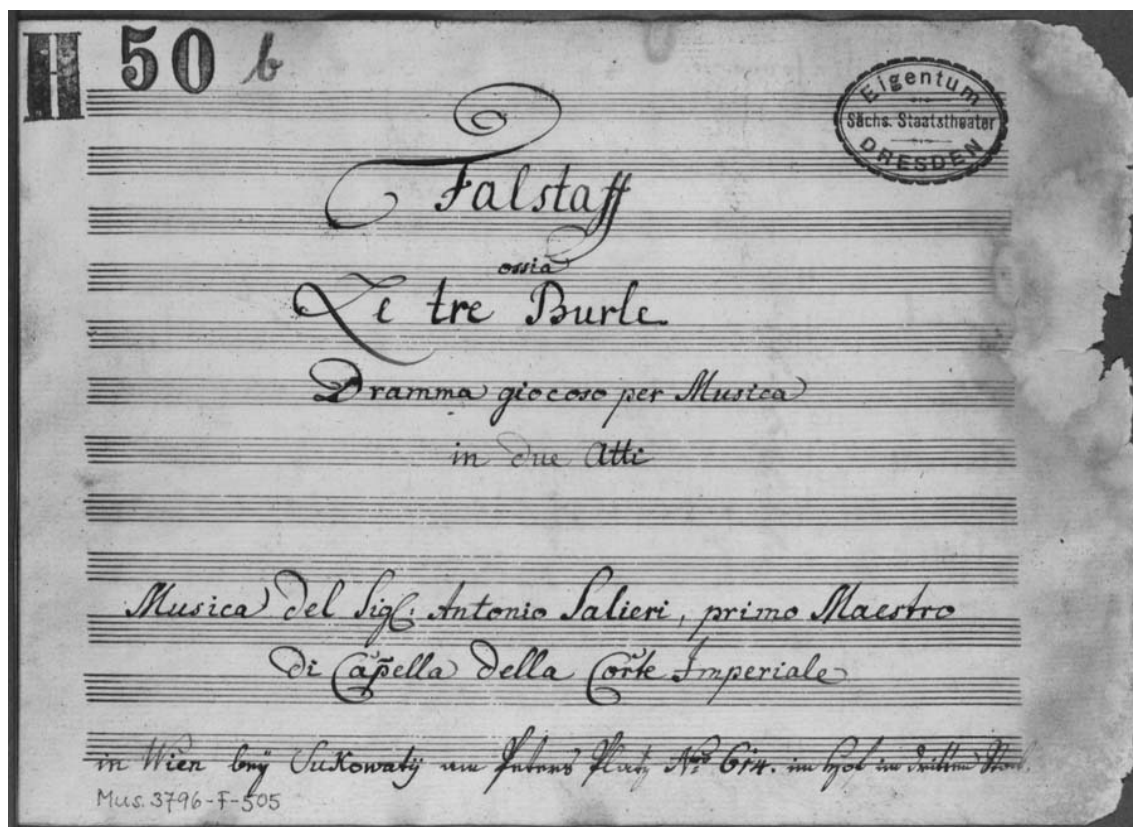 H 50 b
Eigentum
Sächs. Staatstheater
DRESDEN
Falstaff
ossia
Le tre Burle
Dramma giocoso per Musica
in due Atti
Musica del Sig.: Antonio Salieri, primo Maestro
di Capella della Corte Imperiale
in Wien beÿ Sukowatÿ am Peters Platz Nro 614. im Hof im dritten Stock.
Mus. 3796-F-505